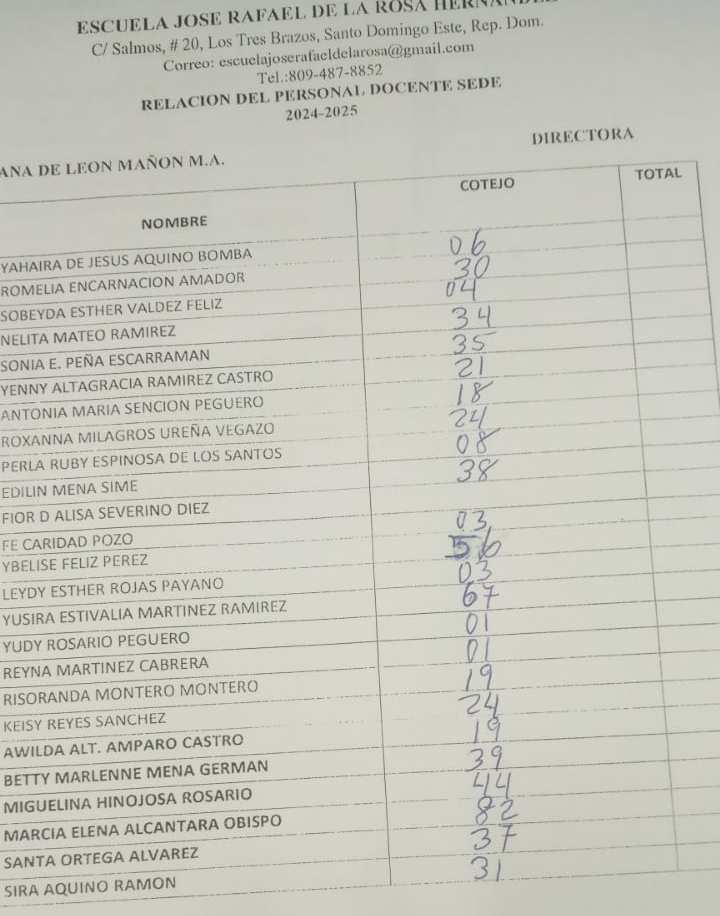 ESCUELA JOSE RAFAEL DE LA ROSA HERNANDEZ
C/ Salmos, # 20, Los Tres Brazos, Santo Domingo Este, Rep. Dom.
Correo: escuelajoserafaeldelarosa@gmail.com
Tel.:809-487-8852
RELACION DEL PERSONAL DOCENTE SEDE
2024-2025
ANA DE LEON MAÑON M.A. DIRECTORA
NOMBRE COTEJO TOTAL
YAHAIRA DE JESUS AQUINO BOMBA 06
ROMELIA ENCARNACION AMADOR 30
SOBEYDA ESTHER VALDEZ FELIZ 04
NELITA MATEO RAMIREZ 34
SONIA E. PEÑA ESCARRAMAN 35
YENNY ALTAGRACIA RAMIREZ CASTRO 21
ANTONIA MARIA SENCION PEGUERO 18
ROXANNA MILAGROS UREÑA VEGAZO 24
PERLA RUBY ESPINOSA DE LOS SANTOS 08
EDILIN MENA SIME 38
FIOR D ALISA SEVERINO DIEZ
FE CARIDAD POZO 03
YBELISE FELIZ PEREZ 56
LEYDY ESTHER ROJAS PAYANO 03
YUSIRA ESTIVALIA MARTINEZ RAMIREZ 67
YUDY ROSARIO PEGUERO 01
REYNA MARTINEZ CABRERA 01
RISORANDA MONTERO MONTERO 19
KEISY REYES SANCHEZ 24
AWILDA ALT. AMPARO CASTRO 19
BETTY MARLENNE MENA GERMAN 39
MIGUELINA HINOJOSA ROSARIO 44
MARCIA ELENA ALCANTARA OBISPO 82
SANTA ORTEGA ALVAREZ 37
SIRA AQUINO RAMON 31